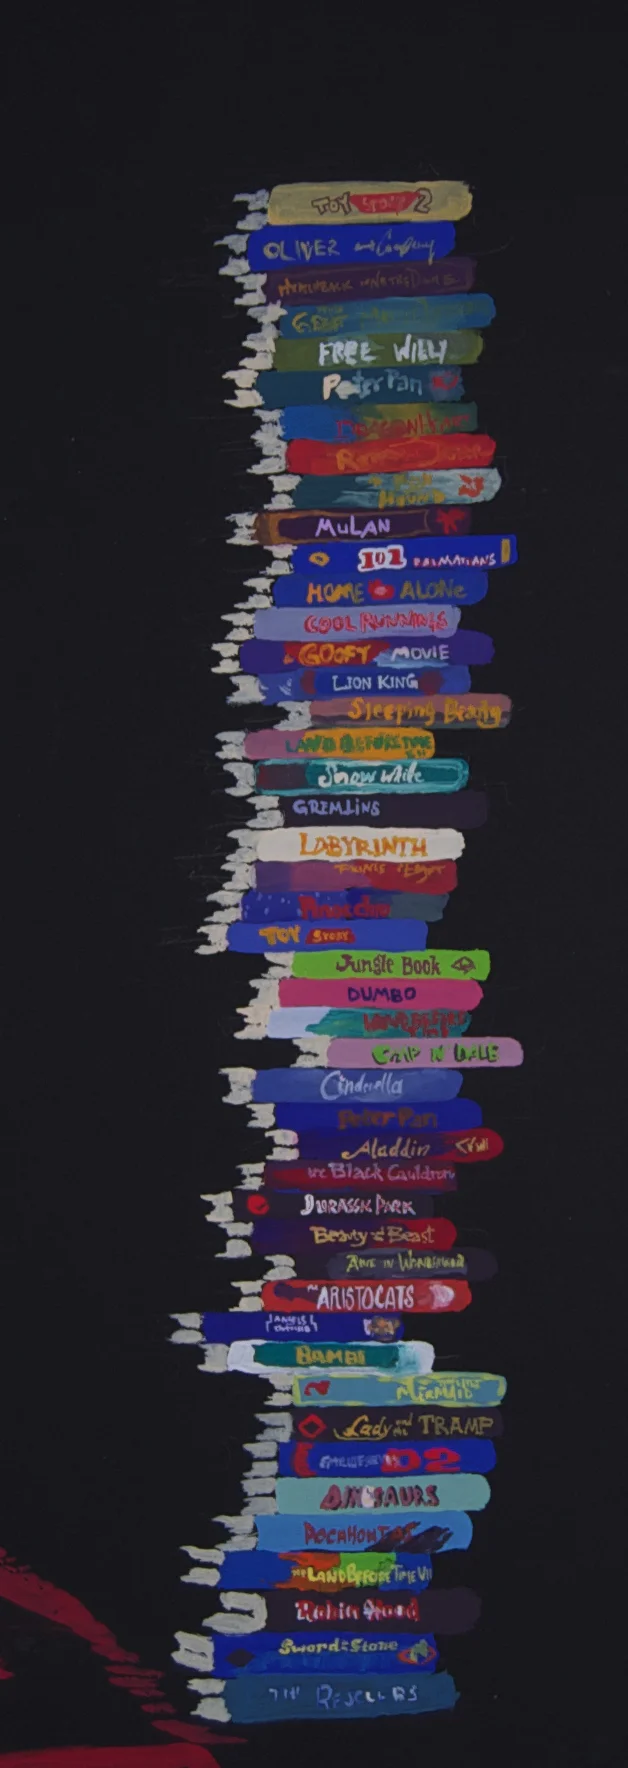 TOY STORY 2
OLIVER and Company
GREAT
FREE WILLY
Peter Pan
HOUND
MULAN
101 DALMATIANS
HOME ALONE
COOL RUNNINGS
A GOOFY MOVIE
LION KING
Sleeping Beauty
LAND BEFORE TIME
Snow White
GREMLINS
LABYRINTH
Pinocchio
TOY STORY
Jungle Book
DUMBO
LAND BEFORE
CHIP N DALE
Cinderella
Peter Pan
Aladdin
THE Black Cauldron
JURASSIC PARK
Beauty and Beast
ALICE IN WONDERLAND
THE ARISTOCATS
ANGELS
BAMBI
MERMAID
Lady and the TRAMP
D2
DINOSAURS
POCAHONTAS
THE LAND BEFORE TIME VII
Robin Hood
Sword in the Stone